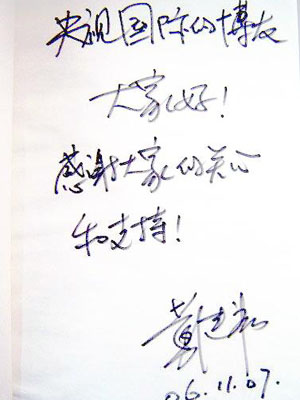 央视国际的博友
大家好！
感谢大家的关心
和支持！
06.11.07.